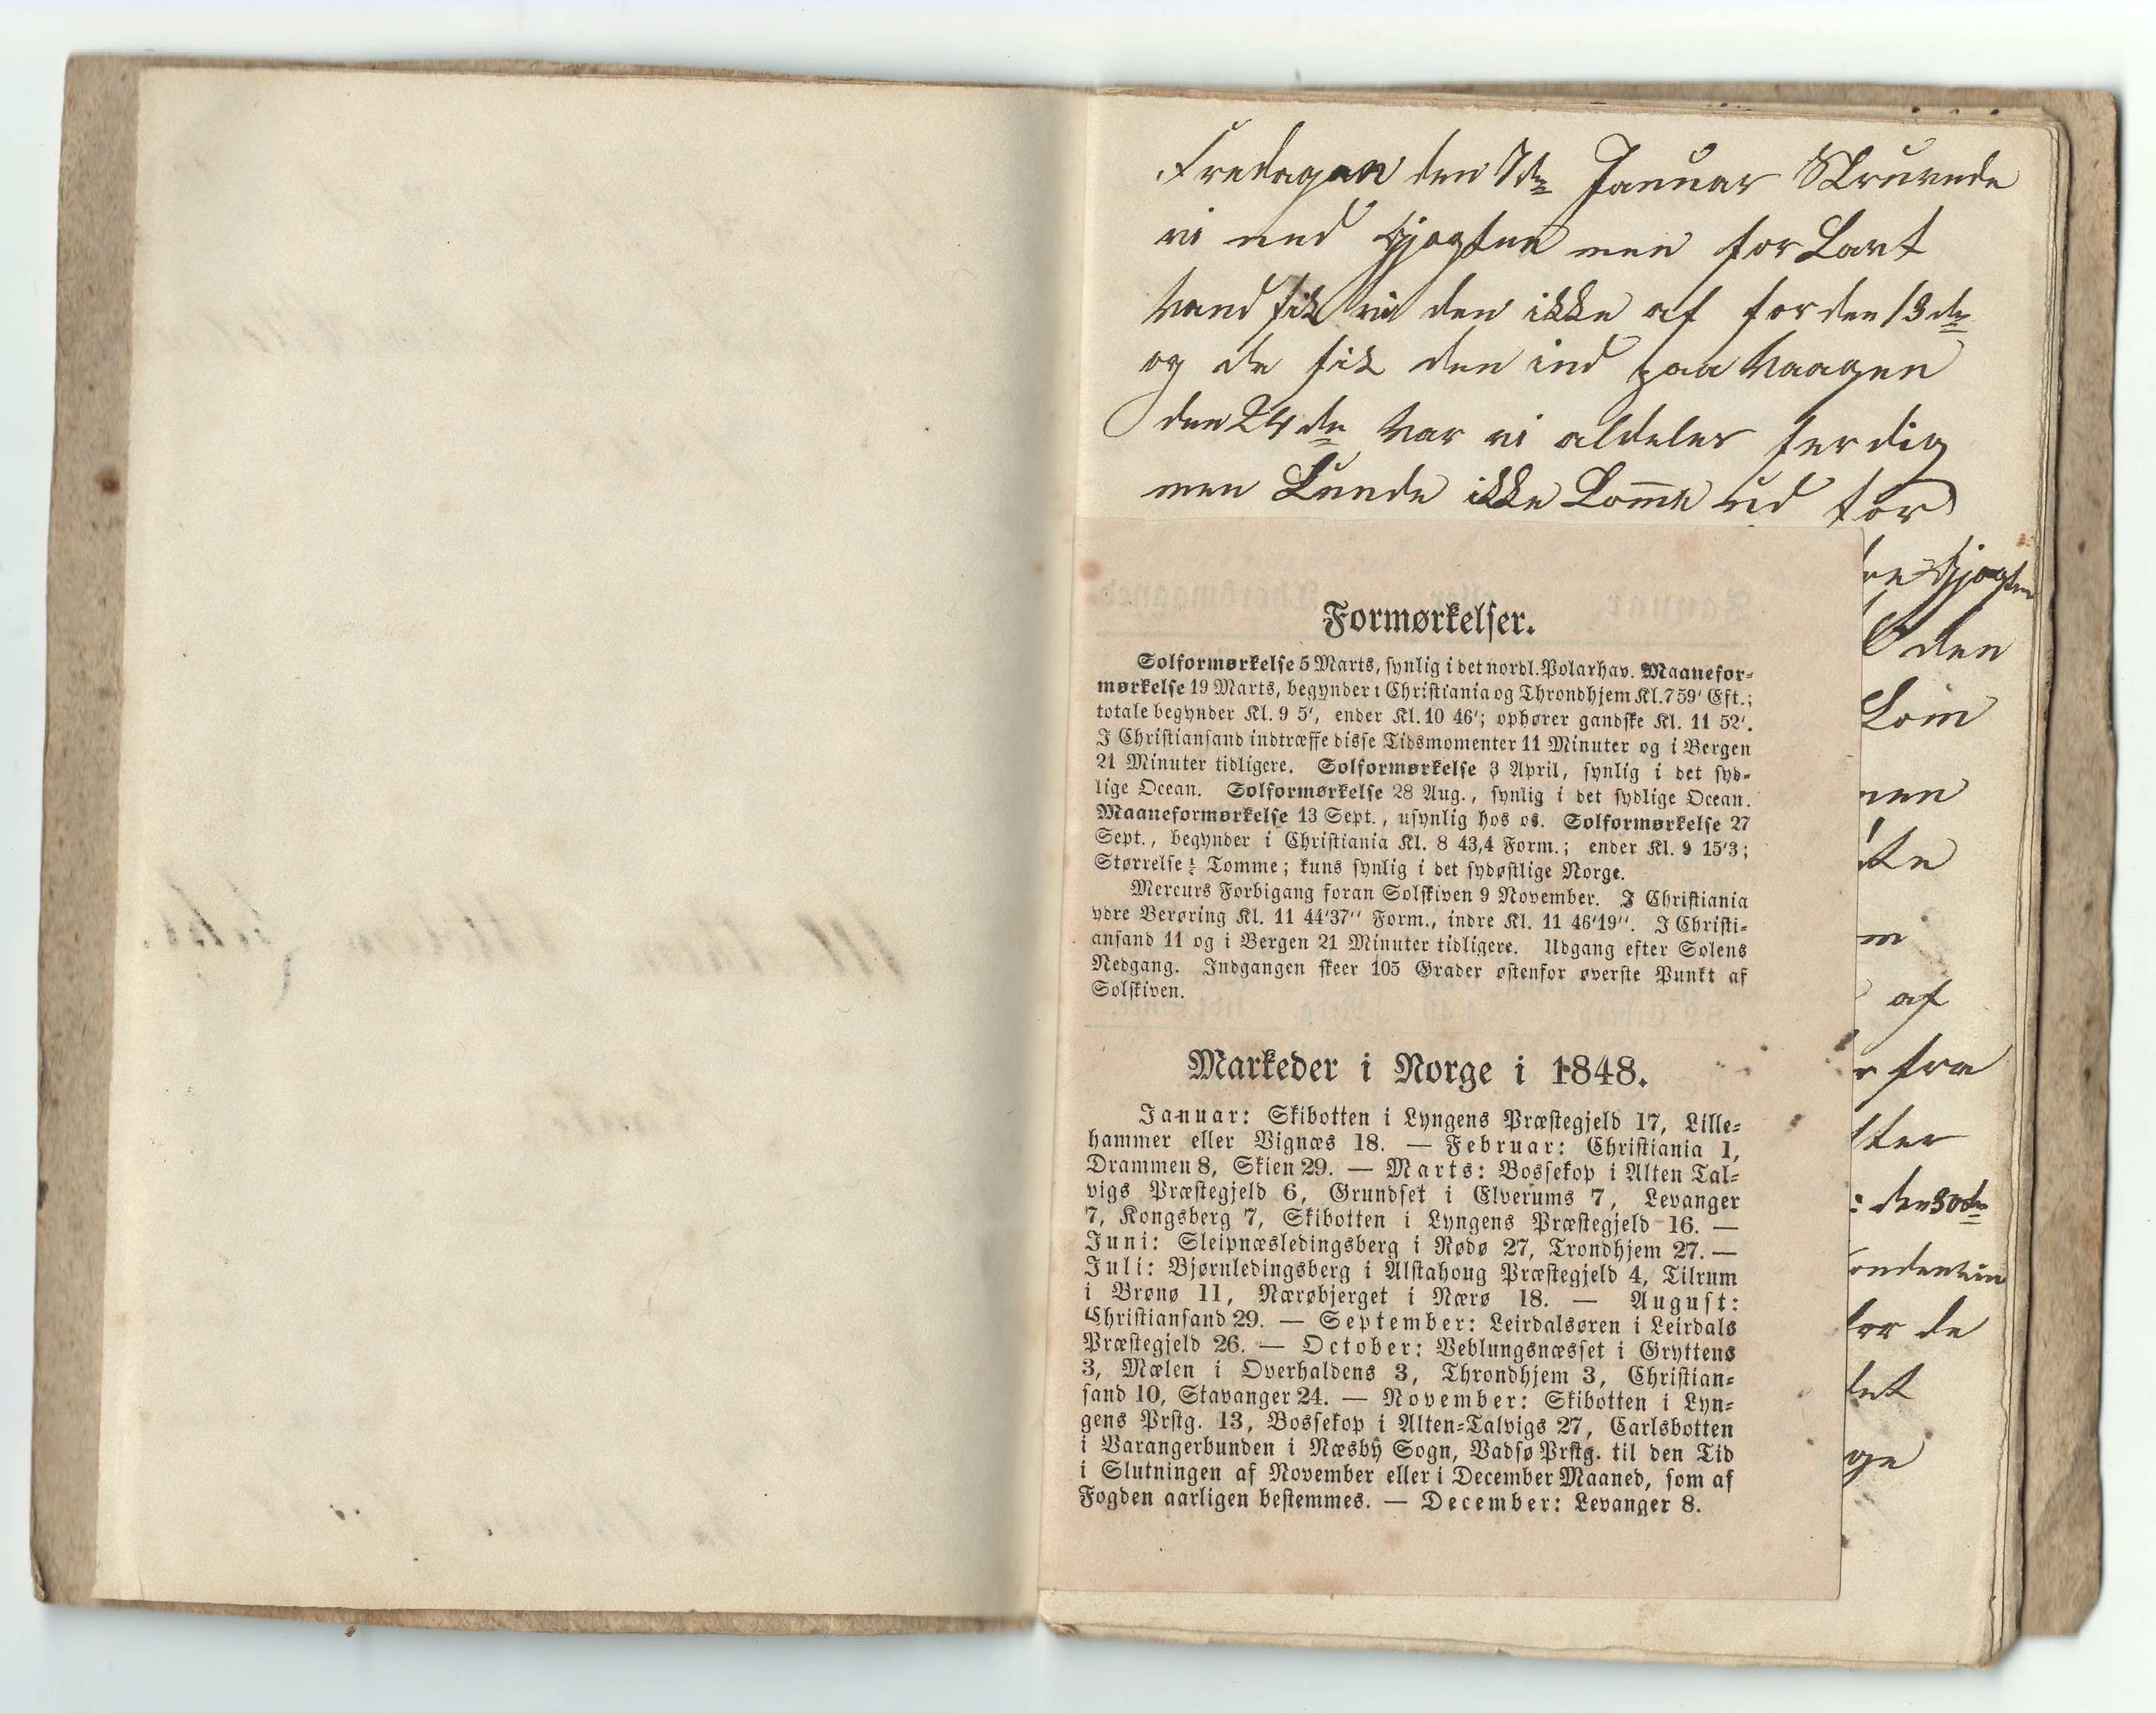 Fredagen den 7de Januar Skruvede
vi ned Gjagten men for Lavt
Vand fik vi den ikke af for den 13de
og de fik den ind paa Vaagen
den 24de var vi aldeles ferdig
men Kunde ikke Komme ud for
Gjagten
den
Kom
af
fra
den 30de
for de
Formørkelser.
Solformørkelse 5 Marts, synlig i det nordl. Polarhav. Maanefor-
mørkelse 19 Marts, begynder i Christiania og Throndhjem Kl. 7 59' Eft.;
totale begynder Kl. 9 5', ender Kl. 10 46'; ophører gandske Kl. 11 52'.
I Christiansand indtræffe disse Tidsmomenter 11 Minuter og i Bergen
21 Minuter tidligere. Solformørkelse 3 April, synlig i det syd-
lige Ocean. Solformørkelse 28 Aug., synlig i det sydlige Ocean.
Maaneformørkelse 13 Sept., usynlig hos os. Solformørkelse 27
Sept., begynder i Christiania Kl. 8 43,4 Form.; ender Kl. 9 15'3;
Størrelse Tomme; kuns synlig i det sydøstlige Norge.
Mercurs Forbigang foran Solskiven 9 November. I Christiania
ydre Berøring Kl. 11 44'37" Form., indre Kl. 11 46'19". I Christi-
ansand 11 og i Bergen 21 Minuter tidligere. Udgang efter Solens
Nedgang. Indgangen skeer 105 Grader østenfor øverste Punkt af
Solskiven.
Markeder i Norge i 1848.
Januar: Skibotten i Lyngens Præstegjeld 17, Lille-
hammer eller Vignæs 18. — Februar: Christiania 1,
Drammen 8, Skien 29. — Marts: Bossekop i Alten Tal-
vigs Præstegjeld 6, Grundset i Elverums 7, Levanger
7, Kongsberg 7, Skibotten i Lyngens Præstegjeld 16. —
Juni: Sleipnæsledingsberg i Rødø 27, Trondhjem 27. —
Juli: Bjørnledingsberg i Alstahoug Præstegjeld 4, Tilrum
i Brønø 11, Nærøbjerget i Nærø 18. — August:
Christiansand 29. — September: Leirdalsøren i Leirdals
Præstegjeld 26. — October: Veblungsnæsset i Gryttens
3, Mælen i Overhaldens 3, Throndhjem 3, Christian-
sand 10, Stavanger 24. — November: Skibotten i Lyn-
gens Prstg. 13, Bossekop i Alten-Talvigs 27, Carlsbotten
i Varangerbunden i Næsby Sogn, Vadsø Prstg. til den Tid
i Slutningen af November eller i December Maaned, som af
Fogden aarligen bestemmes. — December: Levanger 8.